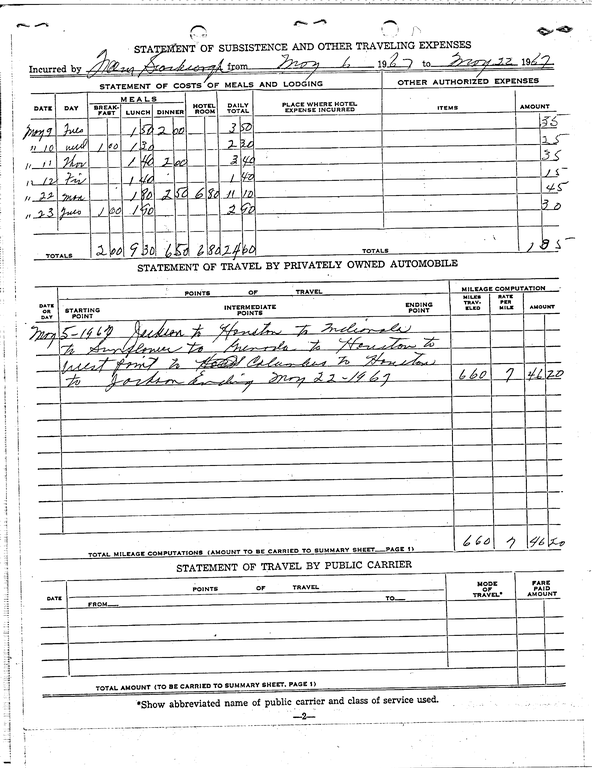 STATEMENT OF SUBSISTENCE AND OTHER TRAVELING EXPENSES
Incurred by from May 6 1967 to May 22 1967
STATEMENT OF COSTS OF MEALS AND LODGING OTHER AUTHORIZED EXPENSES
DATE DAY MEALS BREAK-FAST LUNCH DINNER HOTEL ROOM DAILY TOTAL PLACE WHERE HOTEL EXPENSE INCURRED ITEMS AMOUNT
May 9 Tues 1 50 2 00 3 50 35
" 10 wed 1 00 1 30 2 30 25
" 11 Thu 1 40 2 00 3 40 35
" 12 Fri 1 40 1 40 15
" 22 mon 1 80 2 50 6 80 11 10 45
" 23 Tues 1 00 1 90 2 90 30
TOTALS 2 00 9 30 6 50 6 80 24 60 TOTALS 1 85
STATEMENT OF TRAVEL BY PRIVATELY OWNED AUTOMOBILE
DATE OR DAY POINTS OF TRAVEL MILEAGE COMPUTATION
STARTING POINT INTERMEDIATE POINTS ENDING POINT MILES TRAV-ELED RATE PER MILE AMOUNT
May 5-1967 Jackson to Houston to
to Sunflower to Grenada to Houston to
West Point to Columbus to Houston
to Jackson Ending May 22-1967 660 7 46 20
TOTAL MILEAGE COMPUTATIONS (AMOUNT TO BE CARRIED TO SUMMARY SHEET__PAGE 1) 660 7 46 20
STATEMENT OF TRAVEL BY PUBLIC CARRIER
DATE POINTS OF TRAVEL MODE OF TRAVEL* FARE PAID AMOUNT
FROM__ TO__
TOTAL AMOUNT (TO BE CARRIED TO SUMMARY SHEET, PAGE 1)
*Show abbreviated name of public carrier and class of service used.
—2—